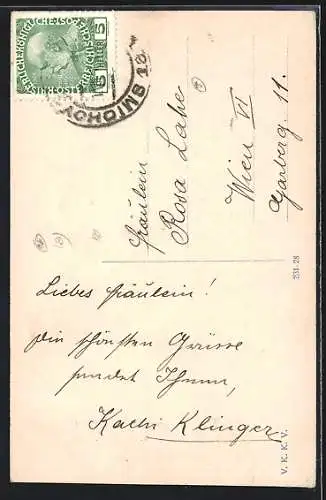 KAISERLICHE KÖNIGLICHE ÖSTERREICHISCHE POST
5 HELLER 5
SMICHOV
18
Fräulein
Rosa Lahe
Wien VI
11.
Liebes Fräulein!
Die schönsten Grüsse
sendet Ihnen,
Kathi Klinger
231-28
V. K. K. V.